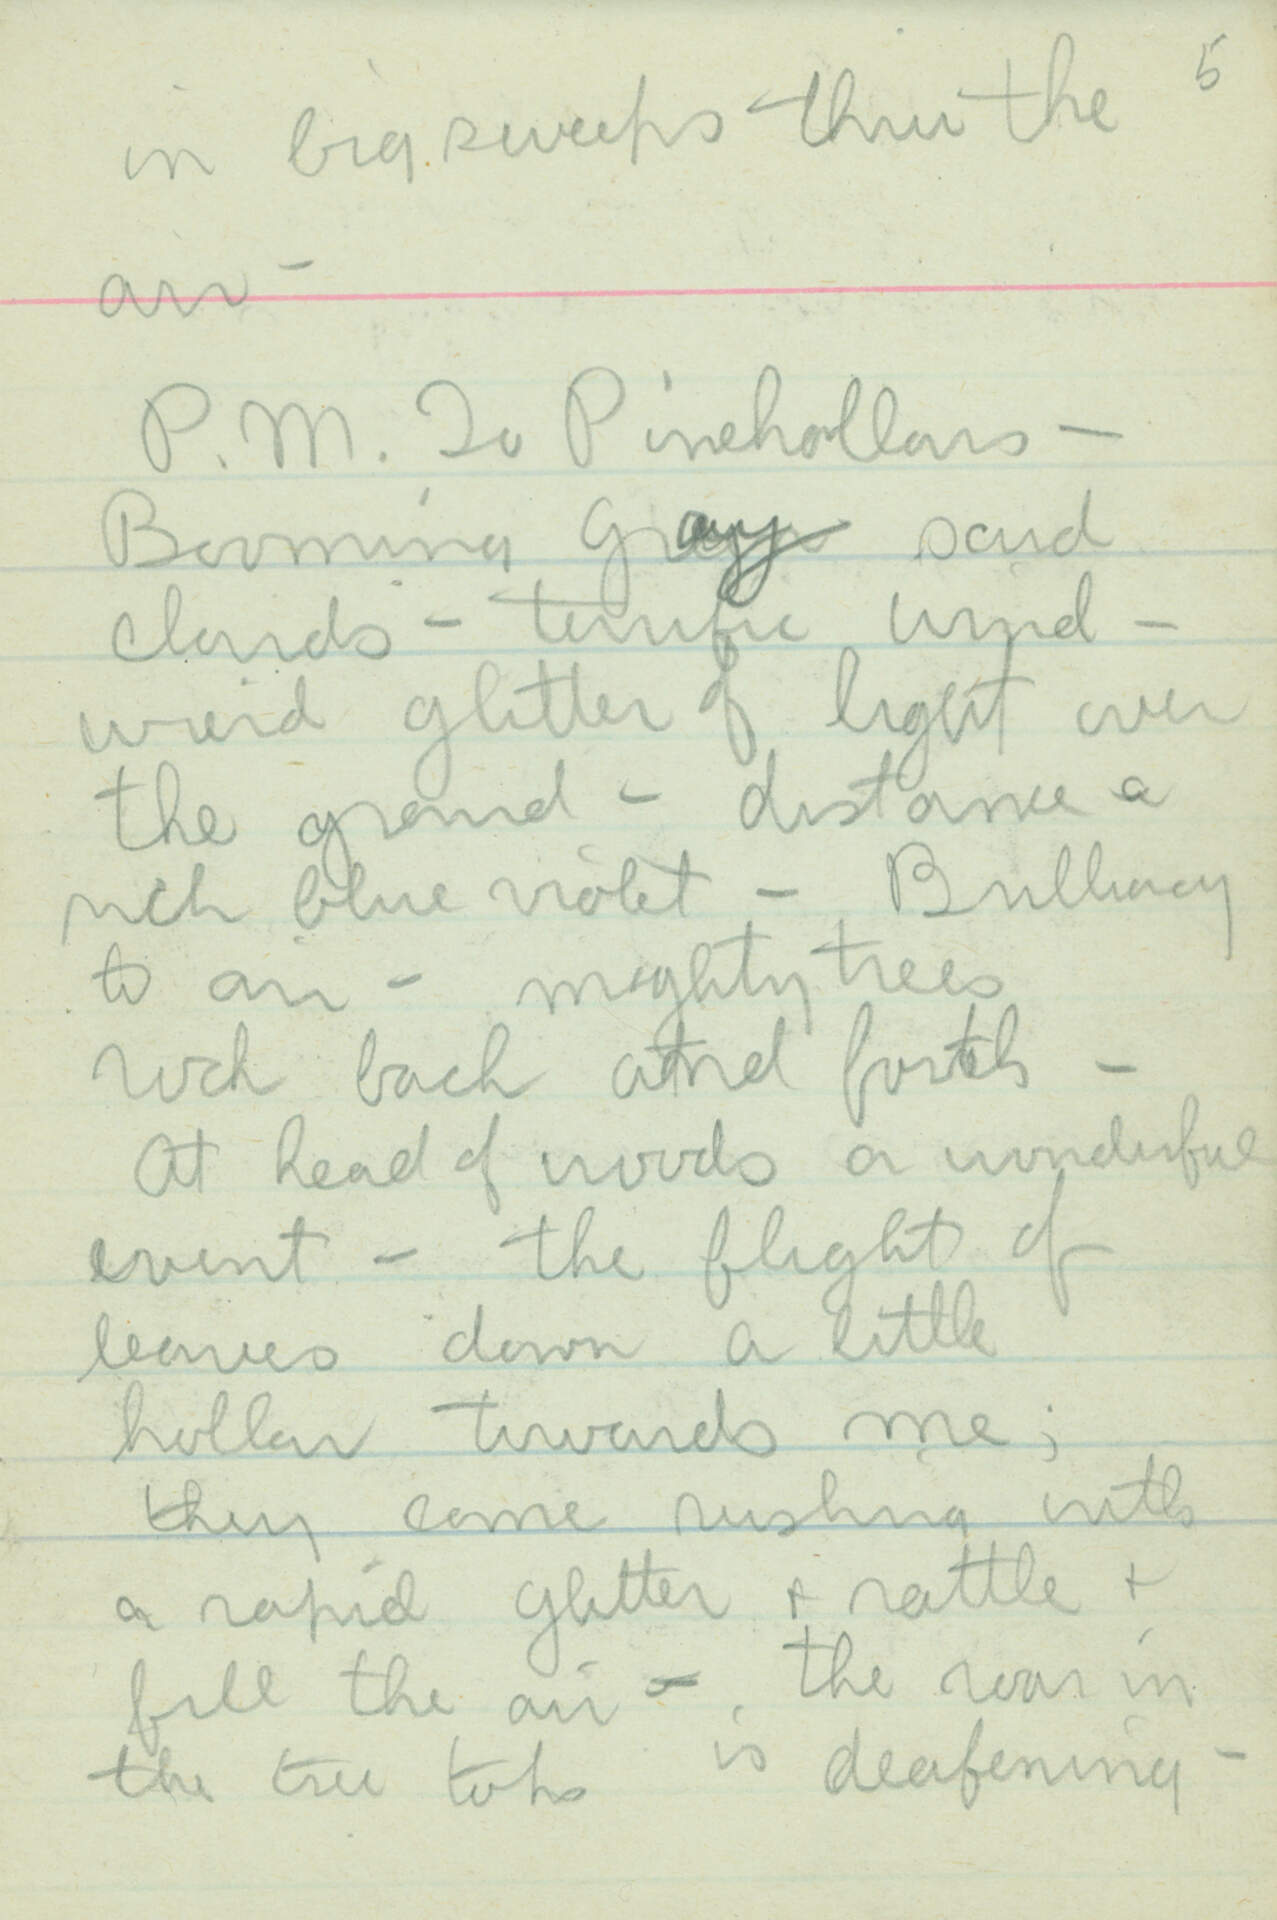 5
in big sweeps thru the
air –
P.M. To Pinehollows –
Booming gray scud
clouds – terrific wind –
wierd glitter of light over
the ground – distance a
rich blue violet – Brilliancy
to air – mighty trees
rock back and forth –
At head of woods a wonderful
event – the flight of
leaves down a little
hollow towards me;
they come rushing with
a rapid glitter + rattle +
fill the air –. the roar in
the tree tops is deafening –